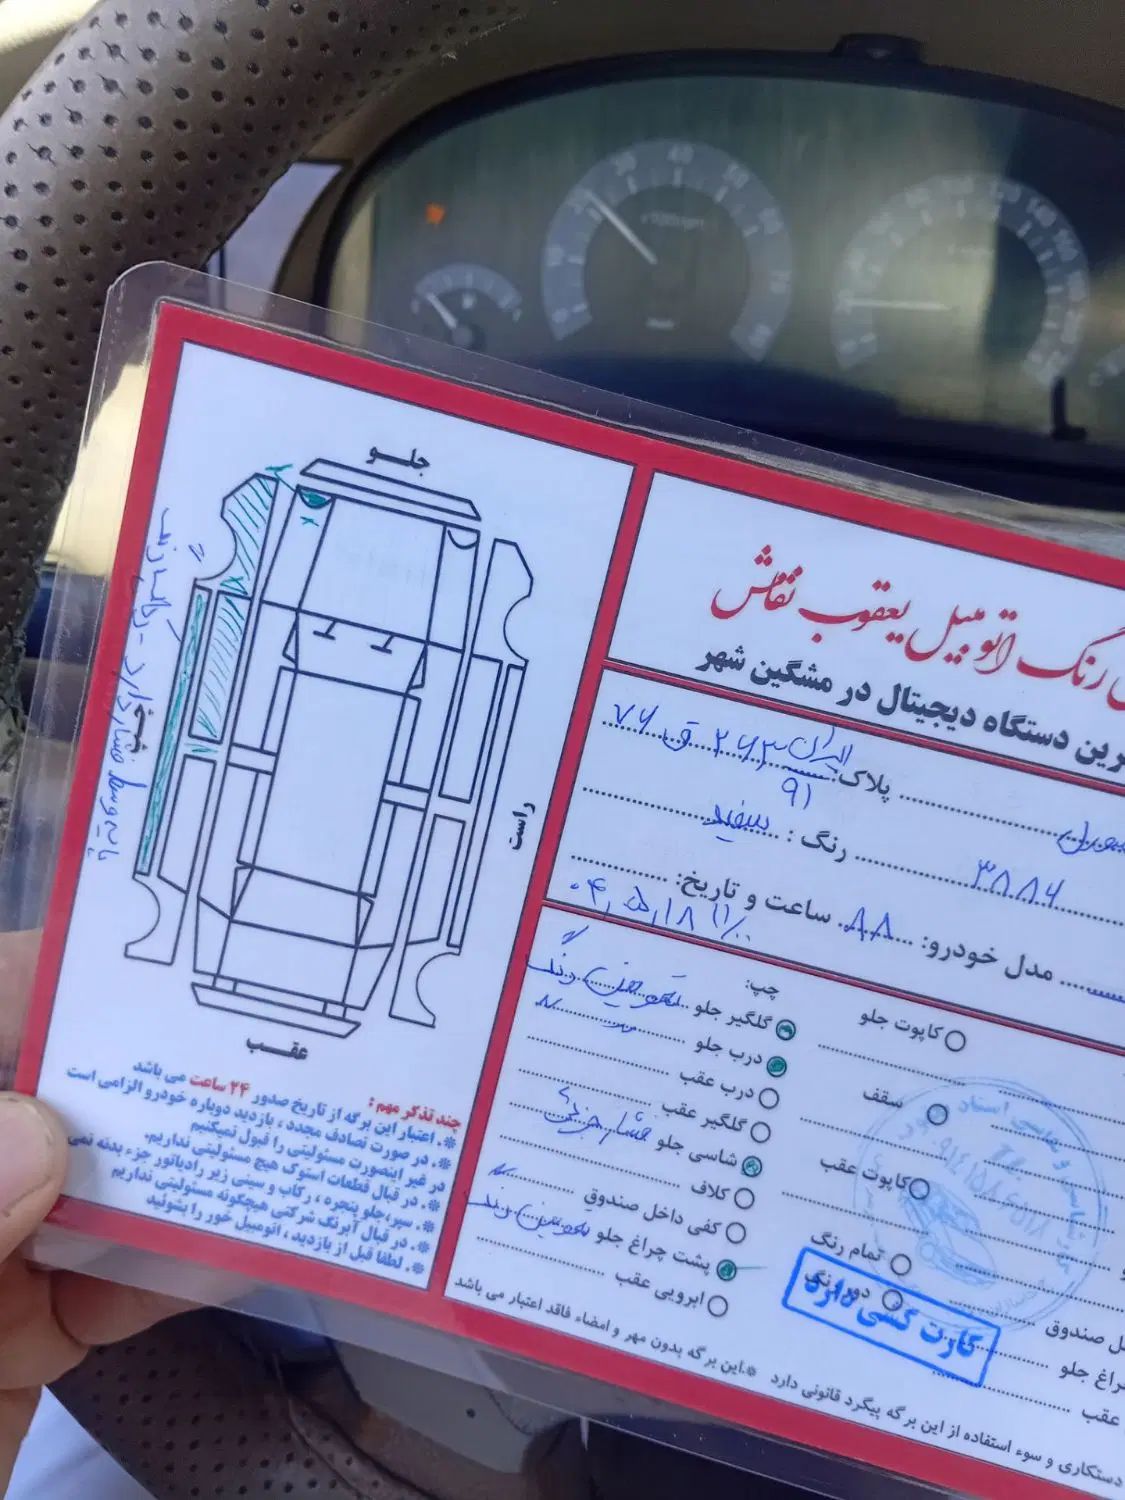 رنگ اتومبیل یعقوب نقاش
دستگاه دیجیتال در مشگین شهر
پلاک: ایران ۹۱ ۲۶۳ ق ۷۶
۳۸۸۶ رنگ: سفید
مدل خودرو: ۸۸ ساعت و تاریخ: ۱۱/۰۰ ۰۴,۵,۱۸
جلو
چپ
راست
عقب
چند تذکر مهم:
*. اعتبار این برگه از تاریخ صدور ۲۴ ساعت می باشد
*. در صورت تصادف مجدد، بازدید دوباره خودرو الزامی است
در غیر اینصورت مسئولیتی را قبول نمیکنیم
*. در قبال قطعات استوک هیچ مسئولیتی نداریم.
*. سپر، جلو پنجره، رکاب و سینی زیر رادیاتور جزء بدنه نمی
*. در قبال آبرنگ شرکتی هیچگونه مسئولیتی نداریم
*. لطفا قبل از بازدید، اتومبیل خور را بشوئید
چپ:
گلگیر جلو تعویض رنگ
درب جلو
درب عقب
گلگیر عقب
شاسی جلو فشار جزئی
کلاف
کفی داخل صندوق
پشت چراغ جلو تعویض رنگ
ابرویی عقب
کاپوت جلو
سقف
کاپوت عقب
تمام رنگ
دور رنگ
کارت کشی دارد
صندوق
چراغ جلو
عقب
*. این برگه بدون مهر و امضاء فاقد اعتبار می باشد
دستکاری و سوء استفاده از این برگه پیگرد قانونی دارد